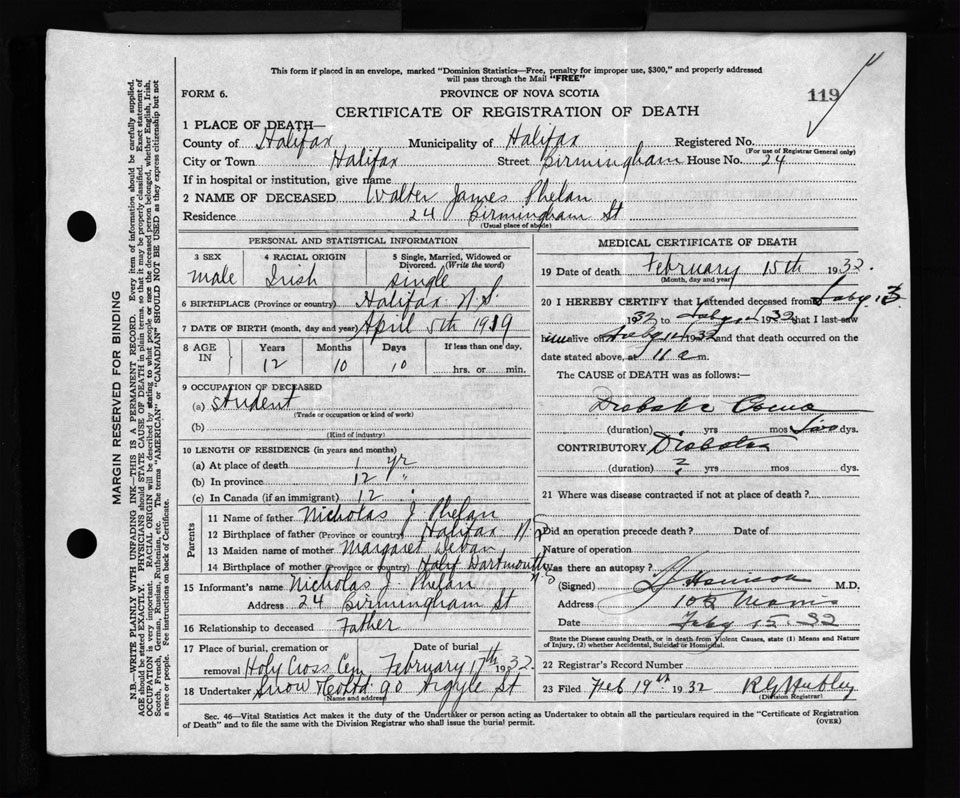 This form if placed in an envelope, marked "Dominion Statistics—Free, penalty for improper use, $300," and properly addressed
will pass through the Mail "FREE"
FORM 6.
PROVINCE OF NOVA SCOTIA
119
CERTIFICATE OF REGISTRATION OF DEATH
1 PLACE OF DEATH—
County of Halifax Municipality of Halifax Registered No.
(For use of Registrar General only)
City or Town Halifax Street Birmingham House No. 24
If in hospital or institution, give name
2 NAME OF DECEASED Walter James Phelan
Residence 24 Birmingham St
(Usual place of abode)
PERSONAL AND STATISTICAL INFORMATION
3 SEX 4 RACIAL ORIGIN 5 Single, Married, Widowed or
Divorced. (Write the word)
Male Irish Single
6 BIRTHPLACE (Province or country) Halifax N.S.
7 DATE OF BIRTH (month, day and year) April 5th 1919
8 AGE IN Years Months Days If less than one day,
12 10 10 hrs. or min.
9 OCCUPATION OF DECEASED
(a) Student
(Trade or occupation or kind of work)
(b)
(Kind of industry)
10 LENGTH OF RESIDENCE (in years and months)
(a) At place of death 1 yr
(b) In province 12 "
(c) In Canada (if an immigrant) 12
Parents
11 Name of father Nicholas J. Phelan
12 Birthplace of father (Province or country) Halifax N.S
13 Maiden name of mother Margaret
14 Birthplace of mother (Province or country) Dartmouth N.S
15 Informant's name Nicholas J. Phelan
Address 24 Birmingham St
16 Relationship to deceased Father
17 Place of burial, cremation or Date of burial
removal Holy Cross Cem February 17th 1932.
18 Undertaker Snow 90 Argyle St
(Name and address)
MEDICAL CERTIFICATE OF DEATH
19 Date of death February 15th 1932.
(Month, day and year)
20 I HEREBY CERTIFY that I attended deceased from Feby 13
1932 to Feby 1932 that I last saw
him alive on Feby 1932 and that death occurred on the
date stated above, at 11 a m.
The CAUSE of DEATH was as follows:—
Diabetic Coma
(duration) yrs mos Two dys.
CONTRIBUTORY Diabetes
(duration) ? yrs mos dys.
21 Where was disease contracted if not at place of death?
Did an operation precede death? Date of
Nature of operation
Was there an autopsy?
(Signed) M.D.
Address 102 Morris
Date Feby 15.32
State the Disease causing Death, or in death from Violent Causes, state (1) Means and Nature
of Injury, (2) whether Accidental, Suicidal or Homicidal.
22 Registered's Record Number
23 Filed Feb 19th 1932
(Division Registrar)
Sec. 46—Vital Statistics Act makes it the duty of the Undertaker or person acting as Undertaker to obtain all the particulars required in the "Certificate of Registration
of Death" and to file the same with the Division Registrar who shall issue the burial permit.
(OVER)
MARGIN RESERVED FOR BINDING
N.B.—WRITE PLAINLY WITH UNFADING INK—THIS IS A PERMANENT RECORD. Every item of information should be carefully supplied.
AGE should be stated EXACTLY. PHYSICIANS should STATE CAUSE OF DEATH in plain terms so that it may be properly classified. Exact statement of
OCCUPATION is very important. RACIAL ORIGIN will be described by stating to what people or race the deceased person belonged, whether English, Irish,
Scotch, French, German, Russian, Ruthenian, etc. The terms "AMERICAN" or "CANADIAN" SHOULD NOT BE USED as they express citizenship but not
a race or people. See instructions on back of Certificate.